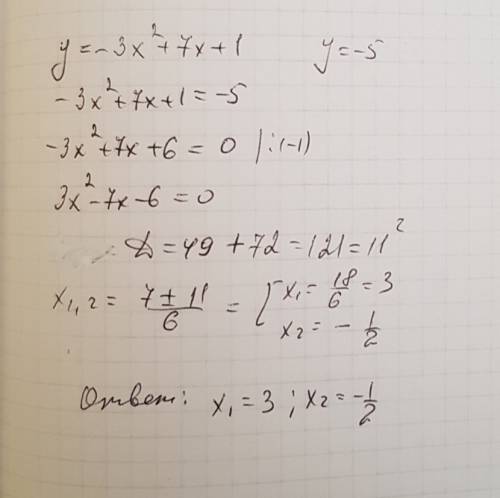 y = -3x² + 7x + 1 y = -5
-3x² + 7x + 1 = -5
-3x² + 7x + 6 = 0 |:(-1)
3x² - 7x - 6 = 0
D = 49 + 72 = 121 = 11²
x₁,₂ = (7 ± 11)/6 = [ x₁ = 18/6 = 3
x₂ = -1/2
Ответ: x₁ = 3 ; x₂ = -1/2